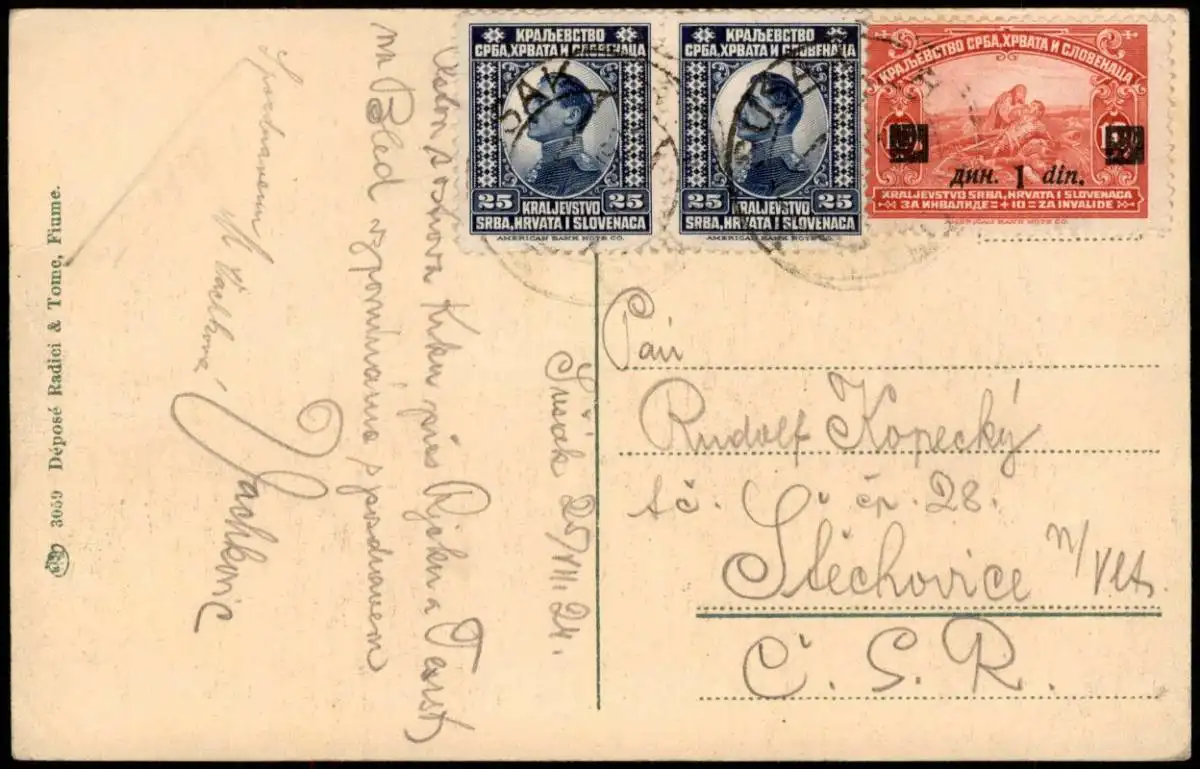 КРАЉЕВСТВО
СРБА, ХРВАТА И СЛОВЕНАЦА
25 25
KRALJEVSTVO
SRBA, HRVATA I SLOVENACA
AMERICAN BANK NOTE CO.
КРАЉЕВСТВО
СРБА, ХРВАТА И СЛОВЕНАЦА
25 25
KRALJEVSTVO
SRBA, HRVATA I SLOVENACA
AMERICAN BANK NOTE CO.
КРАЉЕВСТВО СРБА, ХРВАТА И СЛОВЕНАЦА
дин. 1 din.
KRALJEVSTVO SRBA, HRVATA I SLOVENACA
ЗА ИНВАЛИДЕ = + 10 = ZA INVALIDE
AMERICAN BANK NOTE CO.
Sušak 25/VII. 24.
ostrova Krku přes Rjeku a Terst
na Bled vzpomínáme s pozdravem
Vachkovic
3059 Déposé Radici & Tome, Fiume.
Pan
Rudolf Kopecký
č. čp. 28.
Štěchovice n/Vlt.
Č. S. R.